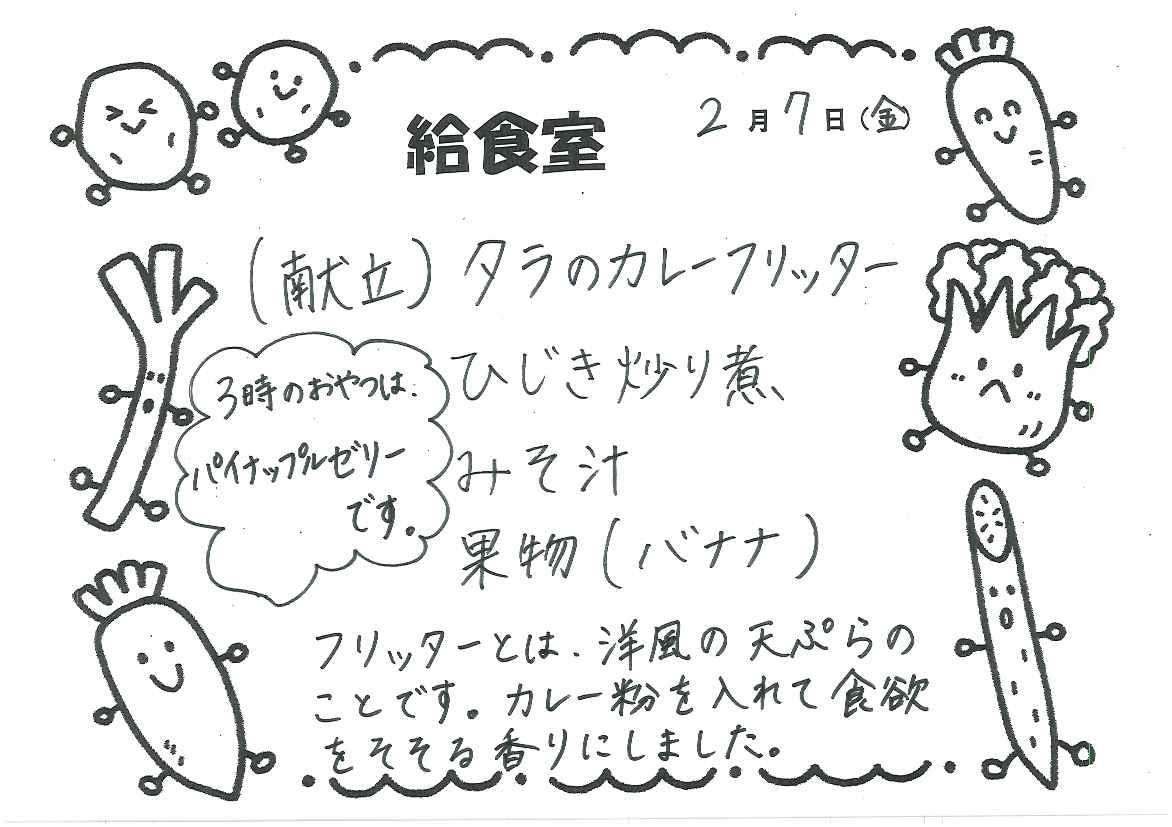 給食室
2月7日(金)
(献立) タラのカレーフリッター
ひじき炒り煮
みそ汁
果物(バナナ)
3時のおやつは、
パイナップルゼリー
です。
フリッターとは、洋風の天ぷらの
ことです。カレー粉を入れて食欲
をそそる香りにしました。